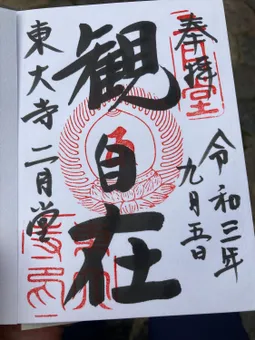 奉拝
令和三年
九月五日
観自在
東大寺二月堂